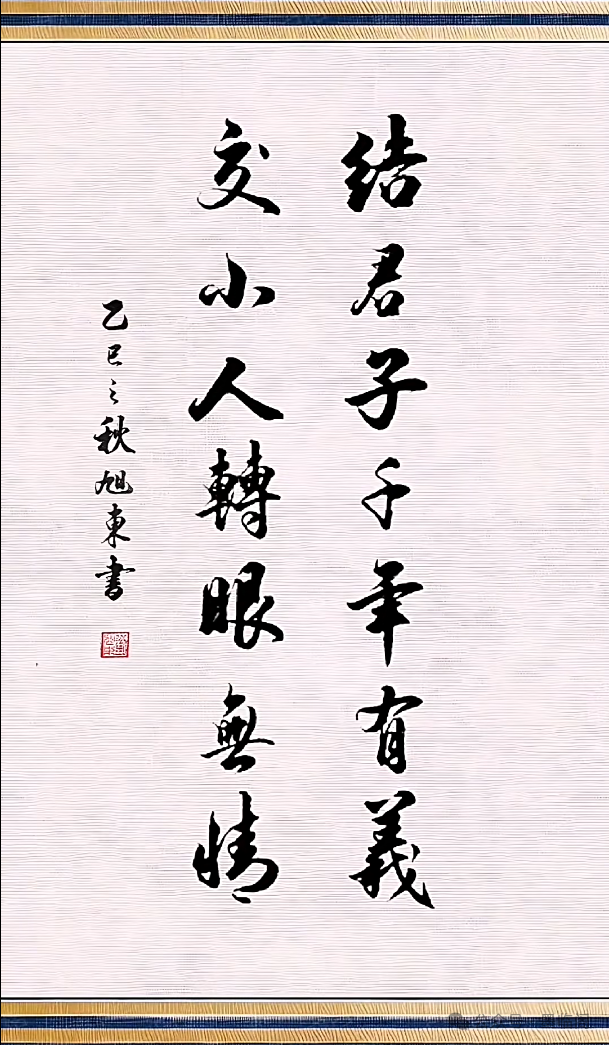 結君子千年有義
交小人轉眼無情
乙巳之秋旭東書